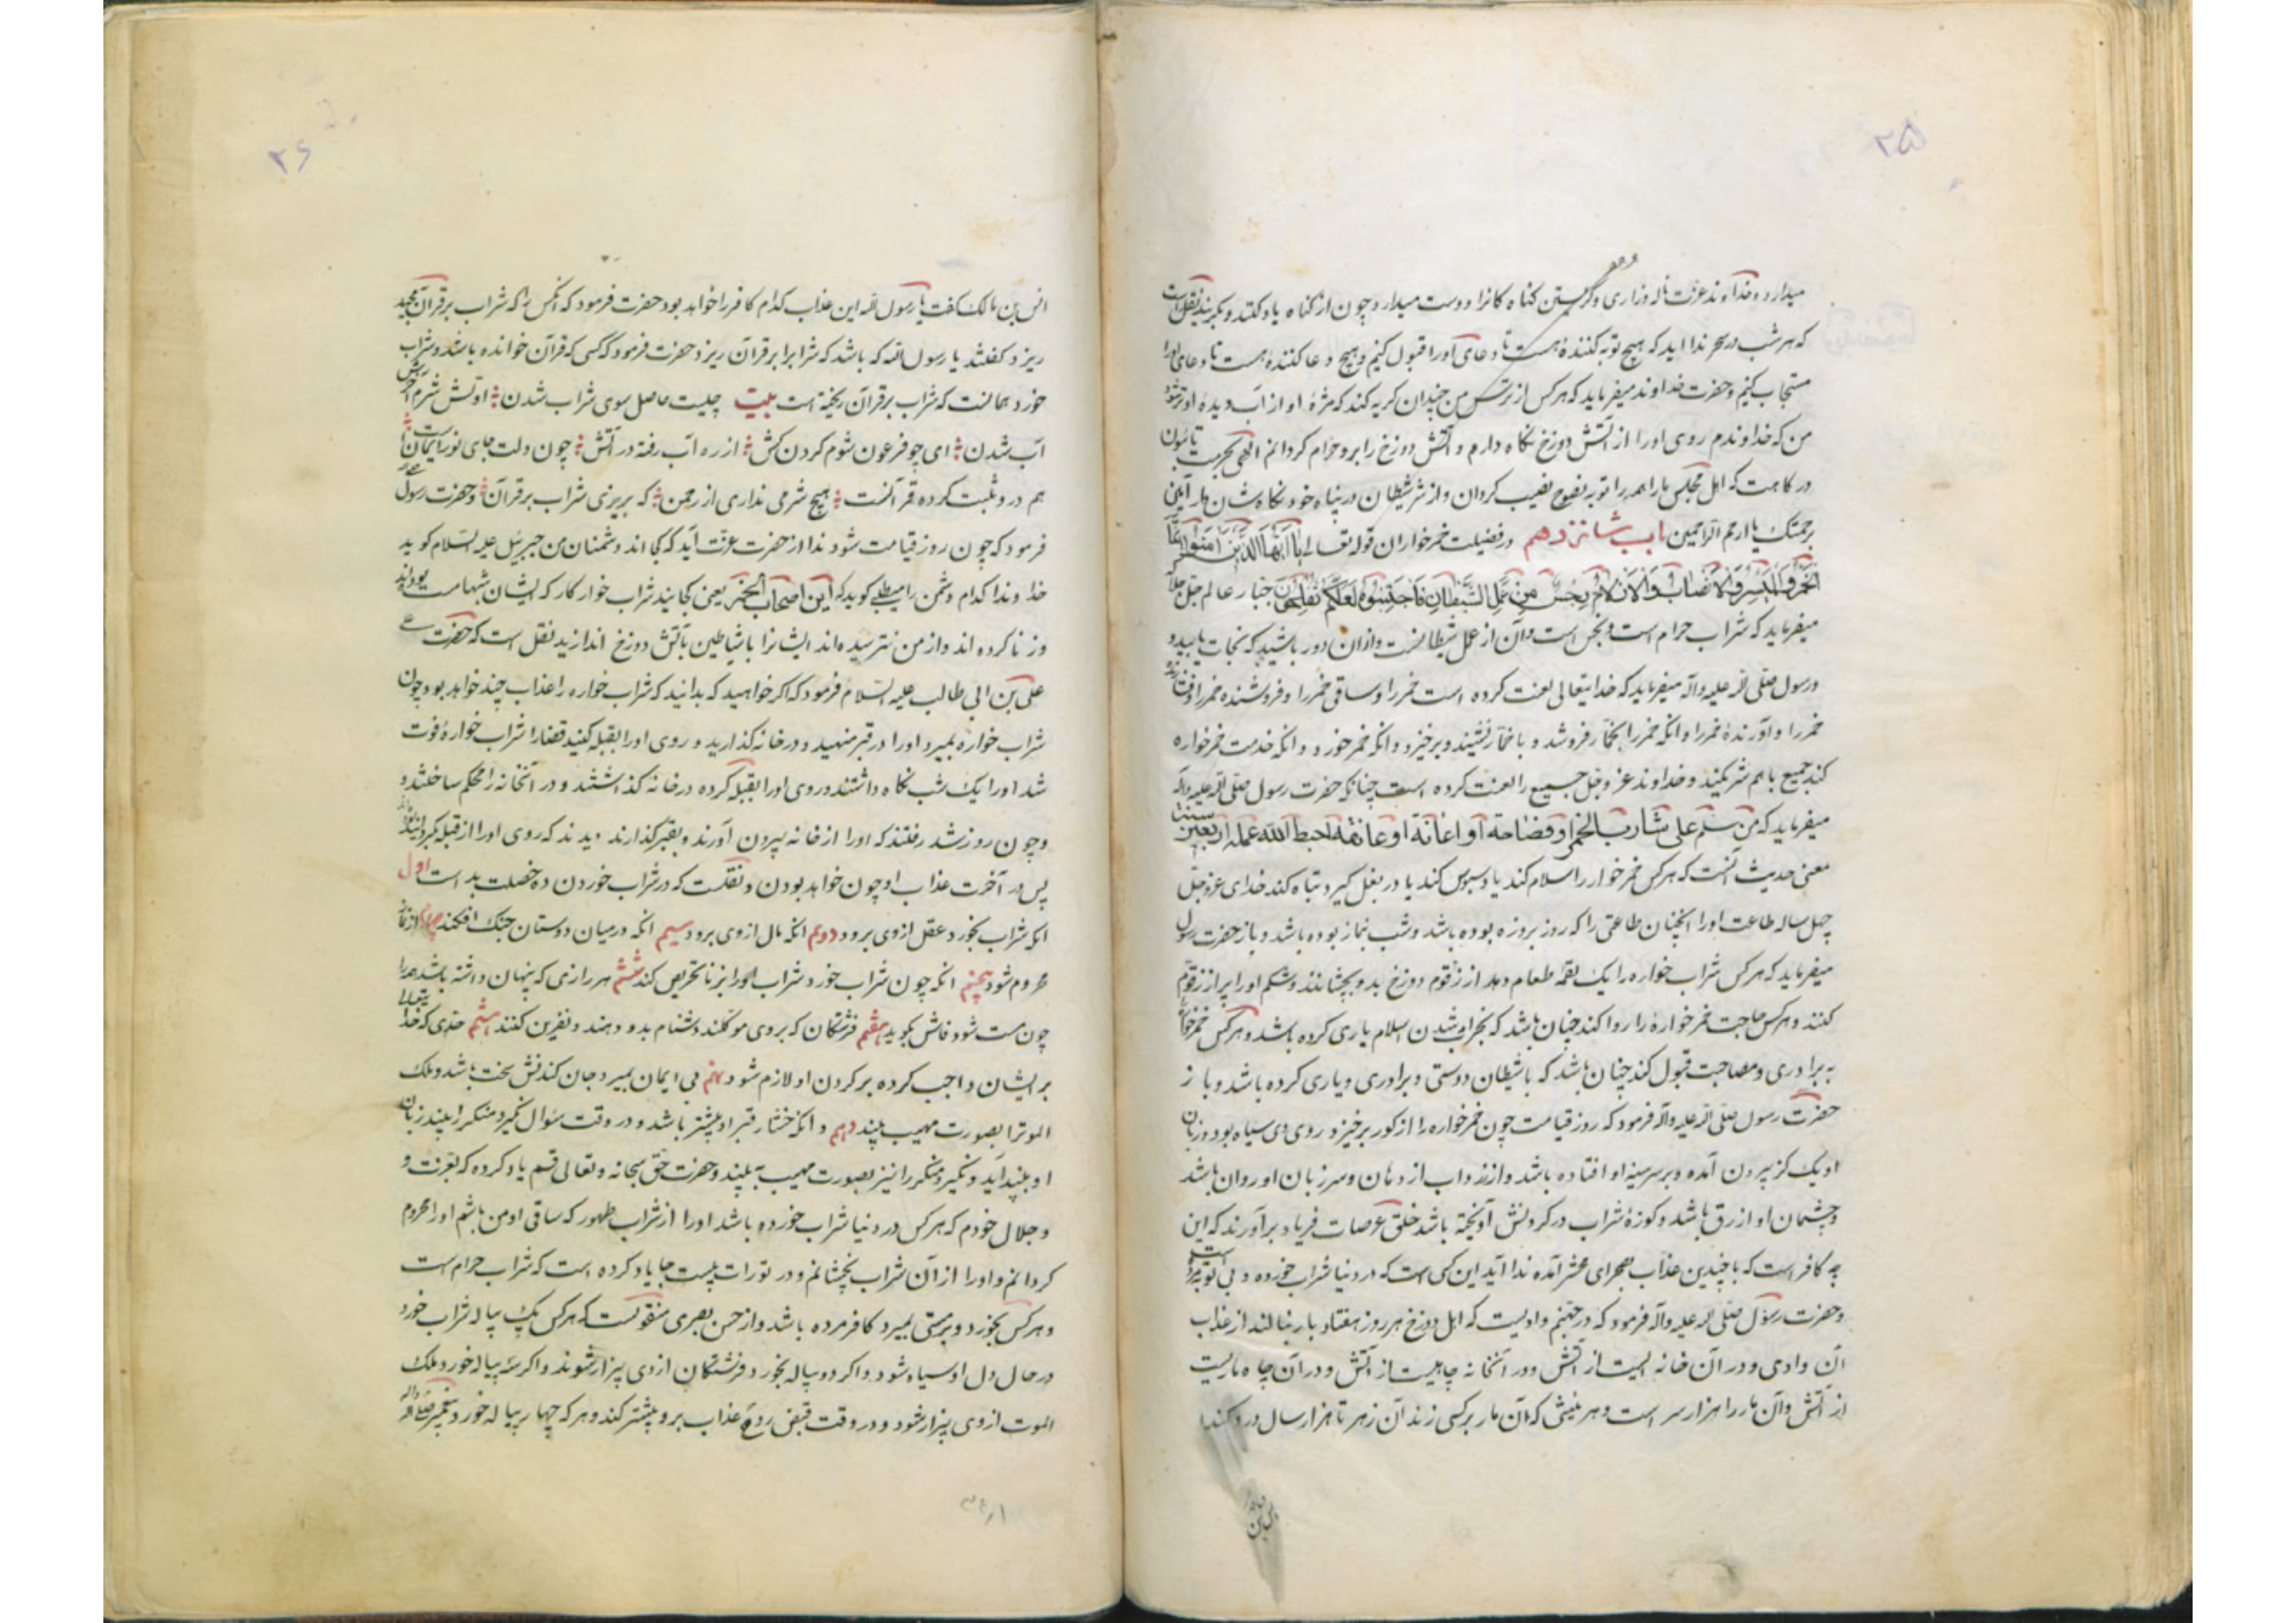 ۲۵
میدارد و خداوند عزت ناله و زاری و گریستن گناه کارانرا دوست میدارد و چون از گناه یاد کنند و بگریند نقل است
که هر شب در سحر ندا اید که هیچ توبه کنندهٔ هست تا دعای اورا قبول کنیم و هیچ دعا کنندهٔ هست تا دعای اورا
مستجاب کنیم و حضرت خداوند میفرماید که هر کس از ترس من چندان گریه کند که مژهٔ او از آب دیده او تر شود
من که خداوندم روی اورا از آتش دوزخ نگاه دارم و آتش دوزخ را برو حرام گردانم الهی بحرمت
در گاهت که اهل مجلس ما را همه را توبه نصوح نصیب گردان و از شر شیطان در پناه خود نگاهشان دار آمین
برحمتک یا ارحم الراحمین باب شانزدهم در فضیلت خمر خواران قوله تعالی یا ایها الذین امنوا انما
الخمر والمیسر والانصاب والازلام رجس من عمل الشیطان فاجتنبوه لعلکم تفلحون جبار عالم جل جلاله
میفرماید که شراب حرام است و نجس است و آن از عمل شیطانست و ازان دور باشید که نجات یابید و
و رسول صلی الله علیه واله میفرماید که خدایتعالی لعنت کرده است خمر را و ساقی خمر را و فروشنده خمر را و
خمر را و آورندهٔ خمر را و انکه خمر را بخمار فروشد و با خمار نشیند و برخیزد و انکه خمر خورد و انکه خدمت خمر خواره
کند جمیع باهم شریکند و خداوند عز و جل جمیع را لعنت کرده است چنانکه حضرت رسول صلی الله علیه واله
میفرماید که من سلم علی شارب الخمر او فصاحه او اعانه او عانقه احبط الله عمله اربعین سنة
معنی حدیث آنست که هر کس خمر خوار را سلام کند یا دسبوس کند یا در بغل گیرد تباه کند خدای عز و جل
چهل ساله طاعت اورا انچنان طاعتی را که روز بروزه بوده باشد و شب بنماز بوده باشد و باز حضرت رسول
میفرماید که هر کس شراب خواره را یک لقمه طعام دهد از زقوم دوزخ بدو بچشانند و شکم اورا پر از زقوم
کنند و هر کس حاجت خمر خوارهٔ را روا کند چنان باشد که بخراب شدن اسلام یاری کرده باشد و هر کس خمر خواره
به برادری و مصاحبت قبول کند چنان باشد که با شیطان دوستی و برادری و یاری کرده باشد و باز
حضرت رسول صلی الله علیه واله فرمود که روز قیامت چون خمر خواره را از گور برخیزد روی وی سیاه بود و زبان
او یک گز بیرون آمده و بر سینهٔ او افتاده باشد و ازرداب از دهان و سر زبان او روان باشد
و چشمان او ازرق باشد و کوزهٔ شراب در گردنش آویخته باشد خلق عرصات فریاد برآورند که این
چه کافر است که با چندین عذاب بصحرای محشر آمده ندا آید این کسی است که در دنیا شراب خورده و بی توبه
و حضرت رسول صلی الله علیه واله فرمود که در جهنم وادیست که اهل دوزخ هر روز هفتاد بار بنالند از عذاب
آن وادی و در آن خانه ایست از آتش و در آنخانه چاهیست از آتش و در آن چاه ماریست
از آتش و آن مار را هزار سر است و هر نیشی که آن مار بر کسی زند آن زهر تا هزار سال درد کند
۲۶
انس بن مالک گفت یا رسول الله این عذاب کدام کافر را خواهد بود حضرت فرمود که آنکس را که شراب بر قرآن مجید
ریزد گفتند یا رسول الله که باشد که شرابرا بر قرآن ریزد حضرت فرمود که کسی که قرآن خوانده باشد و شراب
خورد همانست که شراب بر قرآن ریخته است بیت چیست حاصل سوی شراب شدن اولش شر و آخرش
آب شدن ای چو فرعون شوم گردن کش از ره آب رفته در آتش چون دلت جای نور ایمان است
هم درو ثبت کرده قرآنست هیچ شرمی نداری از رحمن که بریزی شراب بر قرآن و حضرت رسول
فرمود که چون روز قیامت شود ندا از حضرت عزت آید که کجااند دشمنان من جبریئل علیه السلام گوید
خداوندا کدام دشمن را میطلبی گوید که این اصحاب الخمر یعنی کجائید شراب خوار کار که ایشان شبها مست بوده‌اند
و زنا کرده‌اند و از من نترسیده‌اند ایشانرا با شیاطین بآتش دوزخ اندازید نقل است که حضرت
علی بن ابی طالب علیه السلام فرمود که اگر خواهید که بدانید که شراب خواره را عذاب چند خواهد بود چون
شراب خواره بمیرد اورا در قبر منهید و در خانه گذارید و روی اورا بقبله کنید قضارا شراب خوارهٔ فوت
شد اورا یک شب نگاه داشتند و روی اورا بقبله کرده در خانه گذاشتند و در آنخانه را محکم ساختند و
و چون روز شد رفتند که اورا از خانه بیرون آورند و بقبر گذارند دیدند که روی اورا از قبله گردانیده
پس در آخرت عذاب او چون خواهد بودن و نقلست که در شراب خوردن ده خصلت بد است اول
انکه شراب بخورد عقل ازوی برود دویم انکه مال ازوی برود سیم انکه درمیان دوستان جنک افکند چهارم از نماز
محروم شود پنجم انکه چون شراب خورد شراب اورا بزنا تحریص کند ششم هر رازی که پنهان داشته باشد همه را
چون مست شود فاش گوید هفتم فرشتگان که بروی موکلند دشنام بدو دهند و نفرین کنند هشتم حدی که خدا یتعالی
بر ایشان واجب کرده بر گردن او لازم شود نهم بی ایمان بمیرد جان کندنش سخت باشد و ملک
الموترا بصورت مهیب بیند دهم و انکه فشار قبر او بیشتر باشد و در وقت سؤال نکیر و منکر را بیند زبان
او بلند آید و نکیر و منکر را نیز بصورت مهیب بیند و حضرت حق سبحانه و تعالی قسم یاد کرده که بعزت و
و جلال خودم که هر کس در دنیا شراب خورده باشد اورا از شراب طهور که ساقی او من باشم اورا محروم
گردانم و اورا از آن شراب نچشانم و در تورات بیست جا یاد کرده است که شراب حرام است
و هر کس بخورد و بر مستی بمیرد کافر مرده باشد و از حسن بصری منقولست که هر کس یک پیاله شراب خورد
در حال دل او سیاه شود و اگر دو پیاله بخورد فرشتگان ازوی بیزار شوند و اگر سه پیاله خورد ملک
الموت ازوی بیزار شود و در وقت قبض روح عذاب برو بیشتر کند و هر که چهار پیاله خورد پیغمبر صلی الله واله